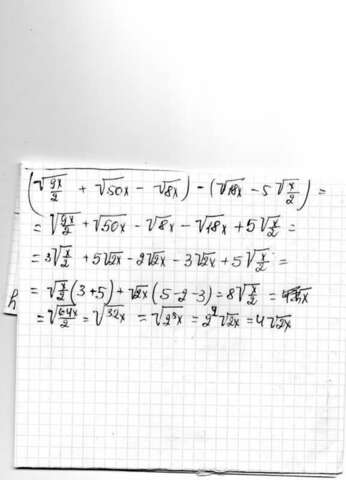 (√(9x/2) + √50x − √8x) − (√18x − 5√(x/2)) =
= √(9x/2) + √50x − √8x − √18x + 5√(x/2) =
= 3√(x/2) + 5√2x − 2√2x − 3√2x + 5√(x/2) =
= √(x/2) (3+5) + √2x (5−2−3) = 8√(x/2) =
= √(64x/2) = √32x = √2⁵x = 2²√2x = 4√2x